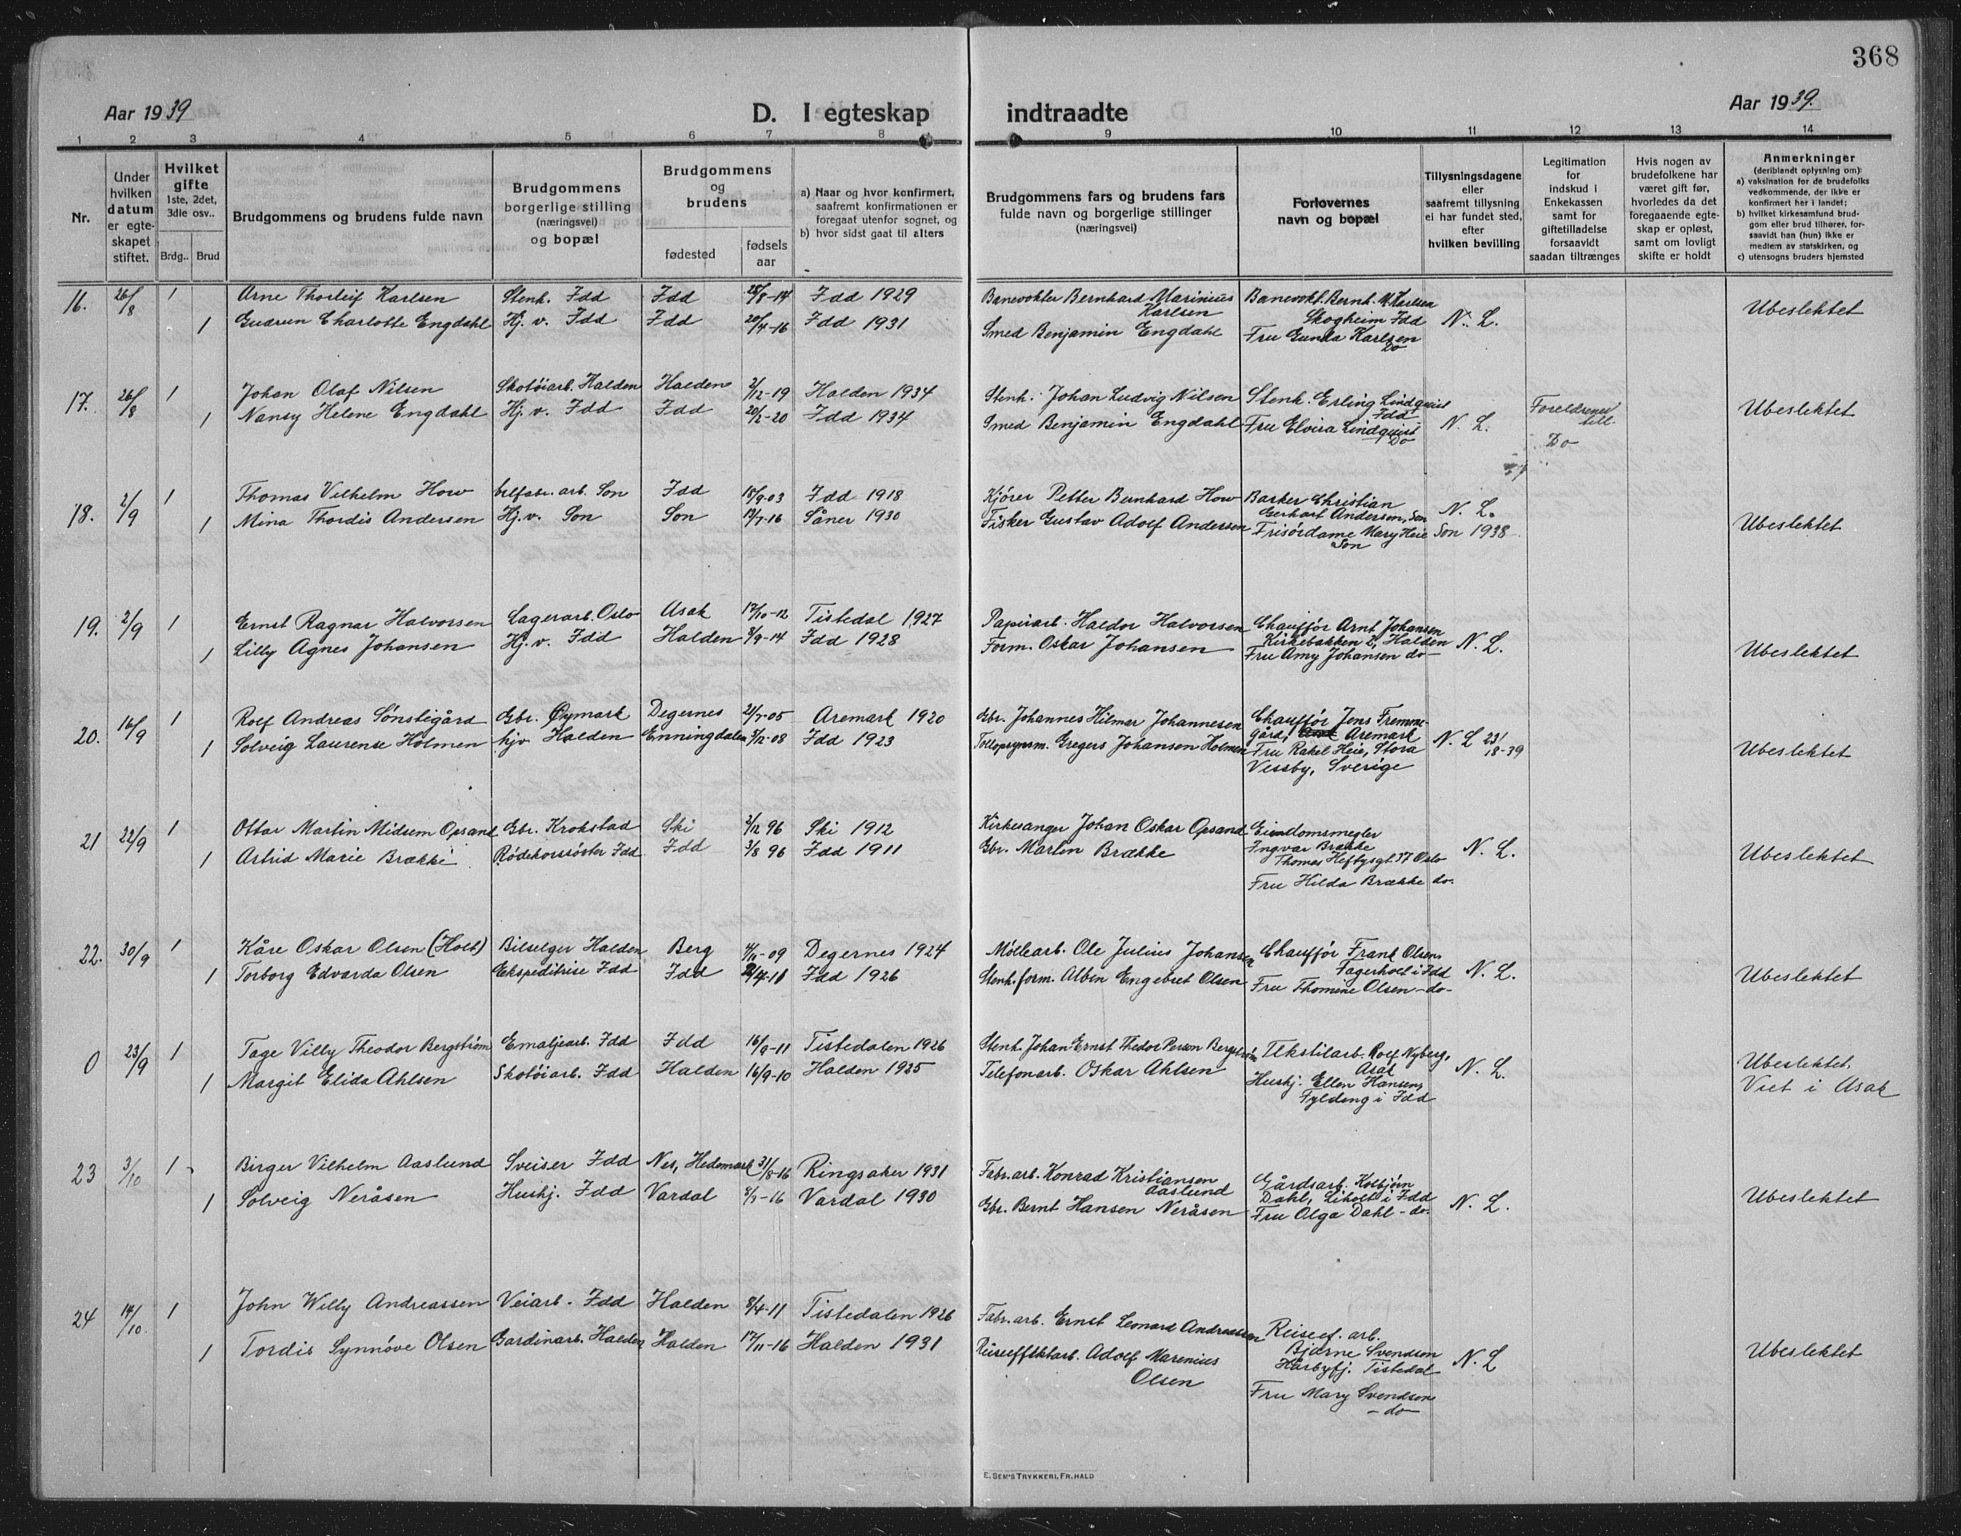 368
Aar 1939
D. I egteskap indtraadte
Aar 1939.
1 2 3 4 5 6 7 8 9 10 11 12 13 14
Nr.
Under hvilken datum er egteskapet stiftet.
Hvilket gifte 1ste, 2det, 3die osv..
Brdg.. Brud
Brudgommens og brudens fulde navn
Brudgommens borgerlige stilling (næringsvei) og bopæl
Brudgommens og brudens
fødested
fødsels aar
a) Naar og hvor konfirmert, saafremt konfirmationen er foregaat utenfor sognet, og
b) hvor sidst gaat til alters
Brudgommens fars og brudens fars fulde navn og borgerlige stillinger (næringsvei)
Forlovernes navn og bopæl
Tillysningsdagene eller saafremt tillysning ei har fundet sted, efter hvilken bevilling
Legitimation for indskud i Enkekassen samt for giftetilladelse forsaavidt saadan tiltrænges
Hvis nogen av brudefolkene har været gift før, hvorledes da det foregaaende egteskap er opløst, samt om lovligt skifte er holdt
Anmerkninger (deriblandt oplysning om):
a) vaksination for de brudefolks vedkommende, der ikke er konfirmert her i landet;
b) hvilket kirkesamfund brudgom eller brud tilhører, forsaavidt han (hun) ikke er medlem av statskirken, og
c) utensogns bruders hjemsted
16. 26/8 1 Arne Thorleif Karlsen Stenh. Idd Idd 28/8-14 Idd 1929 Banevokter Bernhard Marinius Karlsen Banevokt. Bernh. M. Karlsen Skogheim Idd N. L. Ubeslektet
1 Gudrun Charlotte Engdahl Hj. v. Idd Idd 20/4-16 Idd 1931 Smed Benjamin Engdahl Fru Gunda Karlsen Do
17. 26/8 1 Johan Olaf Nilsen Skotøiarb. Halden Halden 2/12-19 Halden 1934 Stenh. Johan Ludvig Nilsen Stenk. Erling Lindquist Idd N. L. Foreldrenes till. Ubeslektet
1 Nansy Helene Engdahl Hj. v. Idd Idd 20/2-20 Idd 1934 Smed Benjamin Engdahl Fru Elvira Lindquist Do Do
18. 2/9 1 Thomas Vilhelm How bilfabr. arb. Son Idd 15/9-03 Idd 1918 Kjører Petter Bernhard How Barker Christian Gerhart Andersen, Son N. L. Ubeslektet
1 Mina Thordis Andersen Hj. v. Son Son 13/7-16 Såner 1930 Fisker Gustav Adolf Andersen Frisørdame Mary Heie Son Son 1938
19. 2/9 1 Ernst Ragnar Halvorsen Lagerarb. Oslo Asak 17/10-12 Tistedal 1927 Papirarb. Haldor Halvorsen Chauffør Arnt Johansen Kirkebakken 2, Halden N. L. Ubeslektet
1 Lilly Agnes Johansen Hj. v. Idd Halden 9/9-14 Idd 1928 Form. Oskar Johansen Fru Amy Johansen do
20. 16/9 1 Rolf Andreas Sønstigård Gbr. Øymark Degernes 21/7-05 Aremark 1920 Gbr. Johannes Hilmar Johannesen Chauffør Jens Fremmegård, Aremark N. L. 23/18-39 Ubeslektet
1 Solveig Laurense Holmen hjv Halden Enningdalen 3/12-08 Idd 1923 Tollopsynsm. Gregers Johansen Holmen Fru Rakel Heie, Stora Vessby, Sverige
21 22/9 1 Ottar Martin Midsem Opsand Gbr. Krokstad Ski 2/12 96 Ski 1912 Kirkesanger Johan Oskar Opsand Eiendomsmegler Ingvar Brække Thomas Heftysgt. 37 Oslo N. L. Ubeslektet
1 Astrid Marie Brække Rødekorssøster Idd Idd 3/8 96 Idd 1911 Gbr. Martin Brække Fru Hilda Brække do.
22. 30/9 1 Kåre Oskar Olsen (Holt) Bilselger Halden Berg 4/11-09 Degernes 1924 Møllearb. Ole Julius Johansen Chauffør Frank Olsen Fagerholt i Idd N. L. Ubeslektet
1 Torborg Edvarda Olsen Ekspeditrise Idd Idd /4-11 Idd 1926 Stenh. form. Albin Engebret Olsen Fru Thomine Olsen - do -
0 23/9 1 Tage Villy Theodor Bergstrøm Emaljearb. Idd Idd 16/9-11 Tistedalen 1926 Stenh. Johan Ernst Thedor Person Bergstrøm Tekstilarb. Rolf Nyberg, Asak N. L. Ubeslektet. Viet i Asak
1 Margit Elida Ahlsen Skotøiarb. Idd Halden 16/9-10 Halden 1925 Telefonarb. Oskar Ahlsen Hushj. Ellen Hansen, Fyldeng i Idd
23 3/10 1 Birger Vilhelm Aaslund Sveiser Idd Nes, Hedemark 31/8-16 Ringsaker 1931 Fabr. arb. Konrad Kristiansen Aaslund Gårdsarb. Kolbjørn Dahl, Liholt i Idd N. L. Ubeslektet
1 Solveig Neråsen Hushj. Idd Vardal 8/3-16 Vardal 1930 Gbr. Bernt Hansen Neråsen Fru Olga Dahl - do.
24 14/10. 1 John Willy Andreassen Veiarb. Idd Halden 8/4-11 Tistedalen 1926 Fabr. arb. Ernst Leonard Andreassen Reiseef. arb. Bjarne Svendsen Hårbyfj. Tistedal N. L Ubeslektet
1 Tordis Synnøve Olsen Gardinarb. Halden Halden 17/11-16 Halden 1931 Reiseeffektarb. Adolf Marenius Olsen Fru Mary Svendsen - do
E. SEM'S TRYKKERI, FR.HALD